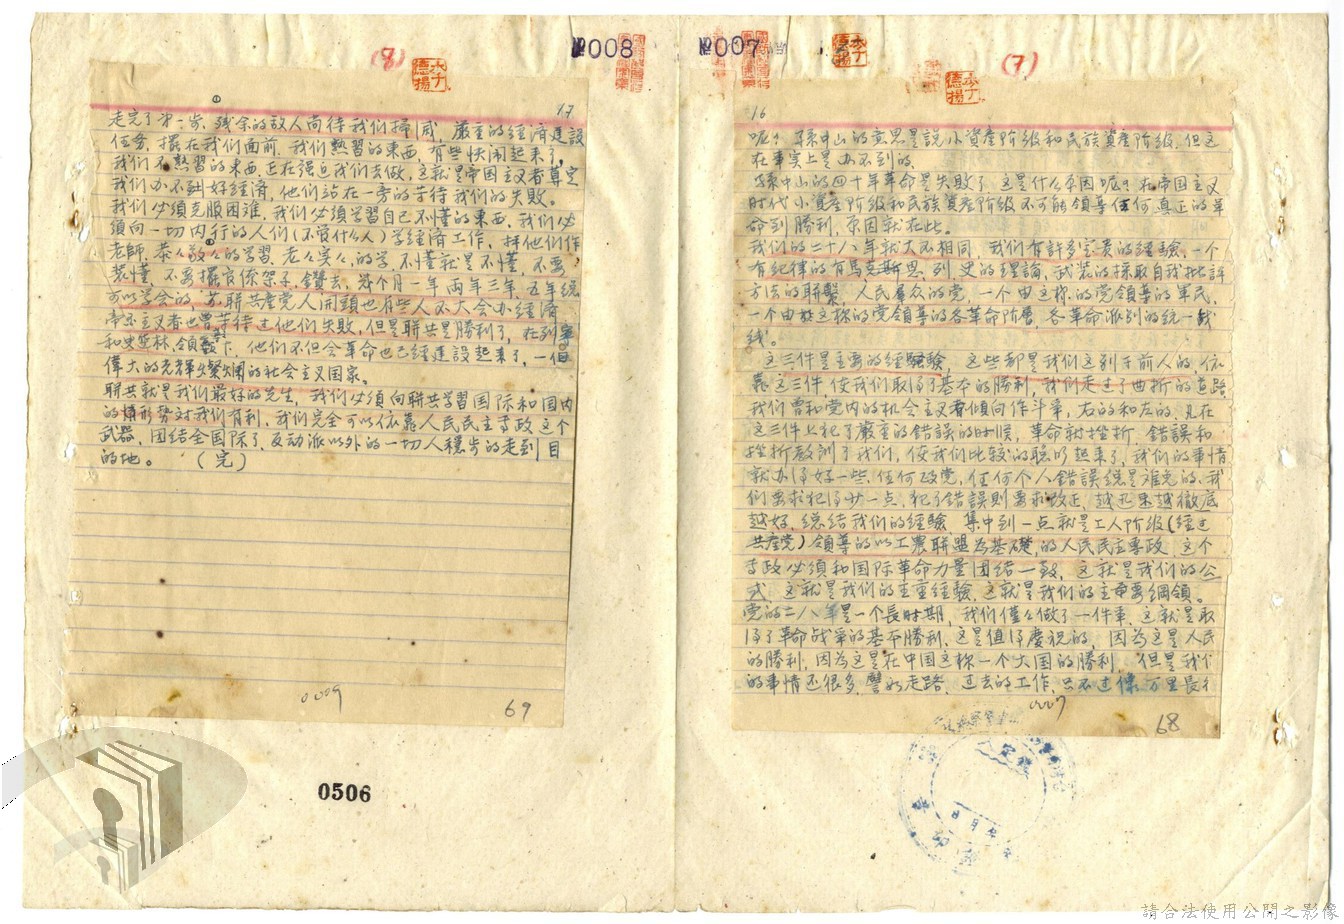 №007
(7)
16
呢？孫中山的意思是説小資產阶级和民族資產阶级，但这
在事实上是办不到的。
孫中山的四十年革命是失敗了，这是什么原因呢？在帝国主义
时代小資產阶级和民族資產阶级不可能領导任何真正的革
命到勝利，原因就在此。
我们的二十八年就大不相同，我们有許多宝贵的經驗，一个
有紀律的有馬克斯恩、列、史的理論，武装的採取自我批評
方法的联繫，人民羣众的党，一个由这样的党領导的軍民，
一个由这样的党領导的各革命阶層，各革命派别的統一战
线。
这三件是主要的經驗，这些都是我们区别于前人的，依
靠这三件，使我们取得了基本的勝利，我们走过了曲折的道路
我们曾和党内的机会主义者傾向作斗爭，右的和左的，凡在
这三件上犯了嚴重的錯誤的时候，革命就挫折，錯誤和
挫折教訓了我们，使我们比较的聪明起来了，我们的事情
就办得好一些，任何政党，任何个人錯誤總是难免的，我
们要求犯得少一点，犯了錯誤則要求改正，越迅速越徹底
越好，總结我们的經驗，集中到一点就是工人阶级(經过
共產党)領导的以工農联盟为基礎，的人民民主專政，这个
专政必須和国际革命力量团结一致，这就是我们的公
式，这就是我们的主重經驗，这就是我们的主要綱領。
党的二八年是一个長时期，我们僅々做了一件事，这就是取
得了革命战爭的基本勝利，这是值得慶祝的，因为这是人民
的勝利，因为这是在中国这样一个大国的勝利，但是我们
的事情还很多，譬如走路，过去的工作，只不过像万里長征
0007
68
№008
(8)
17
走完了第一步，残余的敌人尚待我们掃滅，嚴重的經濟建設
任务，擺在我们面前，我们熟習的東西，有些快闲起来了，
我们不熟習的東西，正在强迫我们去做，这就是帝国主义者算定
我们办不到好經濟，他们站在一旁的等待我们的失敗。
我们必須克服困难，我们必須学習自己不懂的東西，我们必
須向一切内行的人们(不管什么人)学經濟工作，拜他们作
老師，恭々敬々的学習，老々实々的学，不懂就是不懂，不要
装懂，不要擺官僚架子，鑽进去，幾个月一年，两年三年，五年總
可以学会的，苏联共產党人開頭也有些人不大会办經濟
帝国主义者也曾等待过他们失敗，但是联共是勝利了，在列寧
和史达林領导下，他们不但会革命也已經建設起来了，一個
偉大的光輝燦爛的社会主义国家。
联共就是我们最好的先生，我们必須向联共学習国际和国内
的情形势对我们有利，我们完全可以依靠人民民主专政这个
武器，团结全国除了反动派以外的一切人穩步的走到目
的地。 (完)
0009
69
0506
請合法使用公開之影像